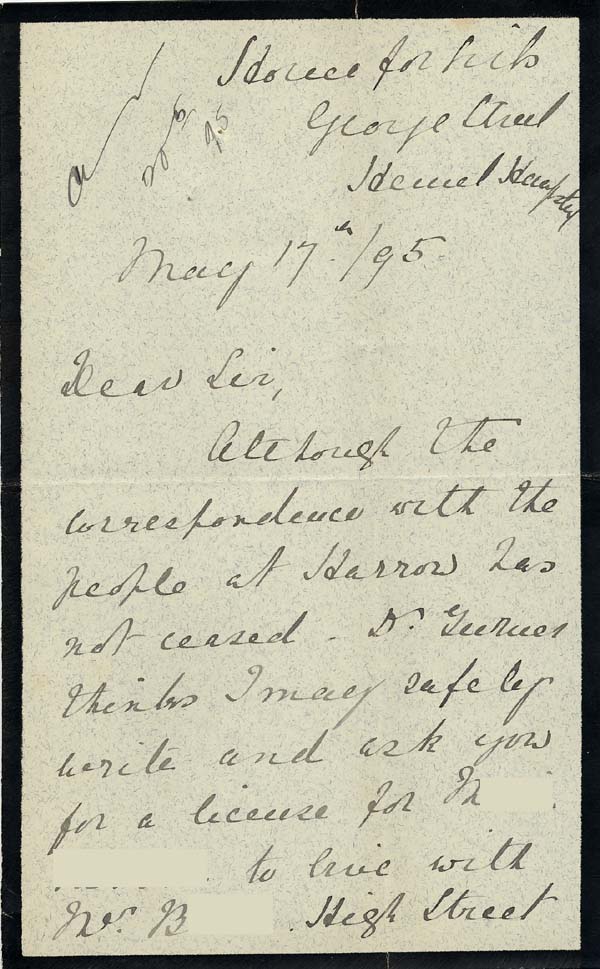 20th
95
House for Girls
George Street
Hemel Hempstd
May 17th/95
Dear Sir,
Although the
correspondence with the
people at Harrow has
not ceased - Dr.
thinks I may safely
write and ask you
for a license for M
to live with
Mrs B . High Street